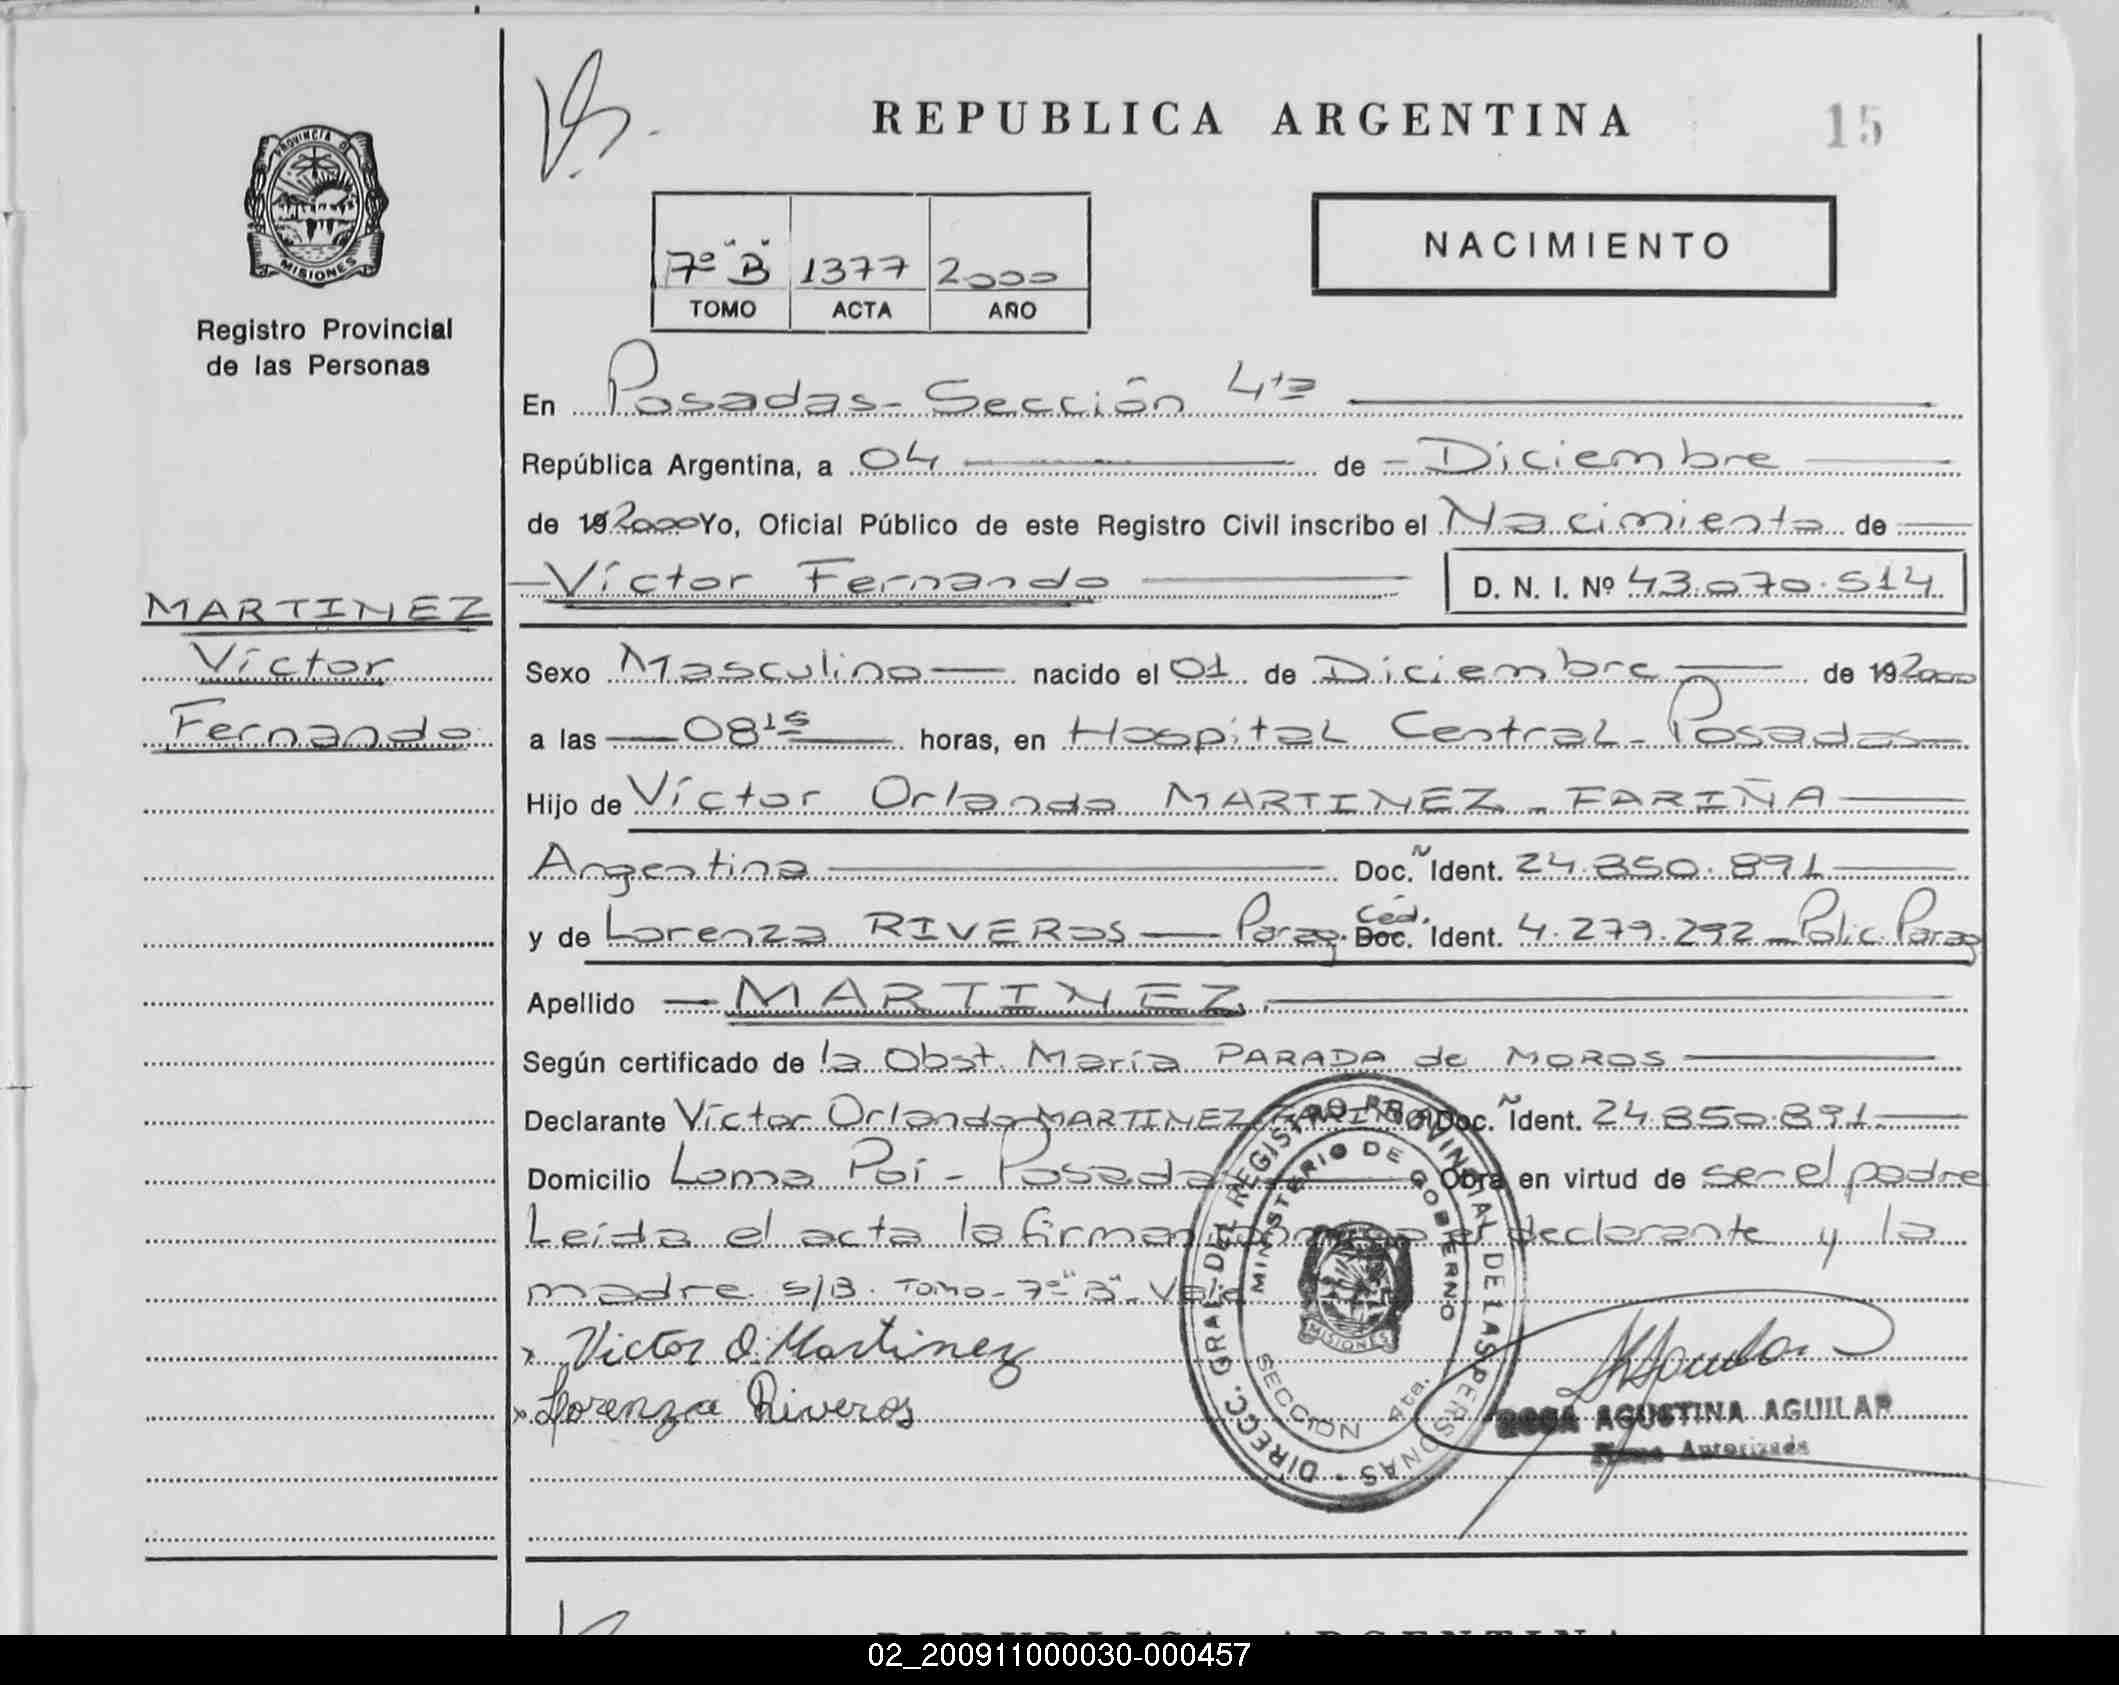 REPUBLICA ARGENTINA
15
PROVINCIA DE
MISIONES
Registro Provincial
de las Personas
7º "B" 1377 2000
TOMO ACTA AÑO
NACIMIENTO
En Posadas - Sección 4ta
República Argentina, a 04 de - Diciembre
de 19 2000 Yo, Oficial Público de este Registro Civil inscribo el Nacimiento de
Víctor Fernando D. N. I. Nº 43.070.514
MARTINEZ
Víctor
Fernando
Sexo Masculino nacido el 01 de Diciembre de 19 2000
a las 08 15 horas, en Hospital Central - Posadas
Hijo de Víctor Orlando MARTINEZ - FARIÑA
Argentina Doc. Ident. 24.850.891
y de Lorenza RIVEROS Parag. Céd. Doc. Ident. 4.279.292 - Polic. Parag
Apellido MARTINEZ
Según certificado de la Obst. María PARADA de MOROS
Declarante Víctor Orlando MARTINEZ FARIÑA Doc. Ident. 24.850.891
Domicilio Loma Poí - Posadas Obra en virtud de ser el padre
Leída el acta la firman conmigo el declarante y la
madre. S/B. Tomo - 7º "B" - Vale
Victor O. Martinez
Lorenza Riveros
DIRECC. GRAL. DEL REGISTRO PROVINCIAL DE LAS PERSONAS
MINISTERIO DE GOBIERNO
MISIONES
SECCION 4ta.
ROSA AGUSTINA AGUILAR
Firma Autorizada
REPUBLICA ARGENTINA
02_200911000030-000457